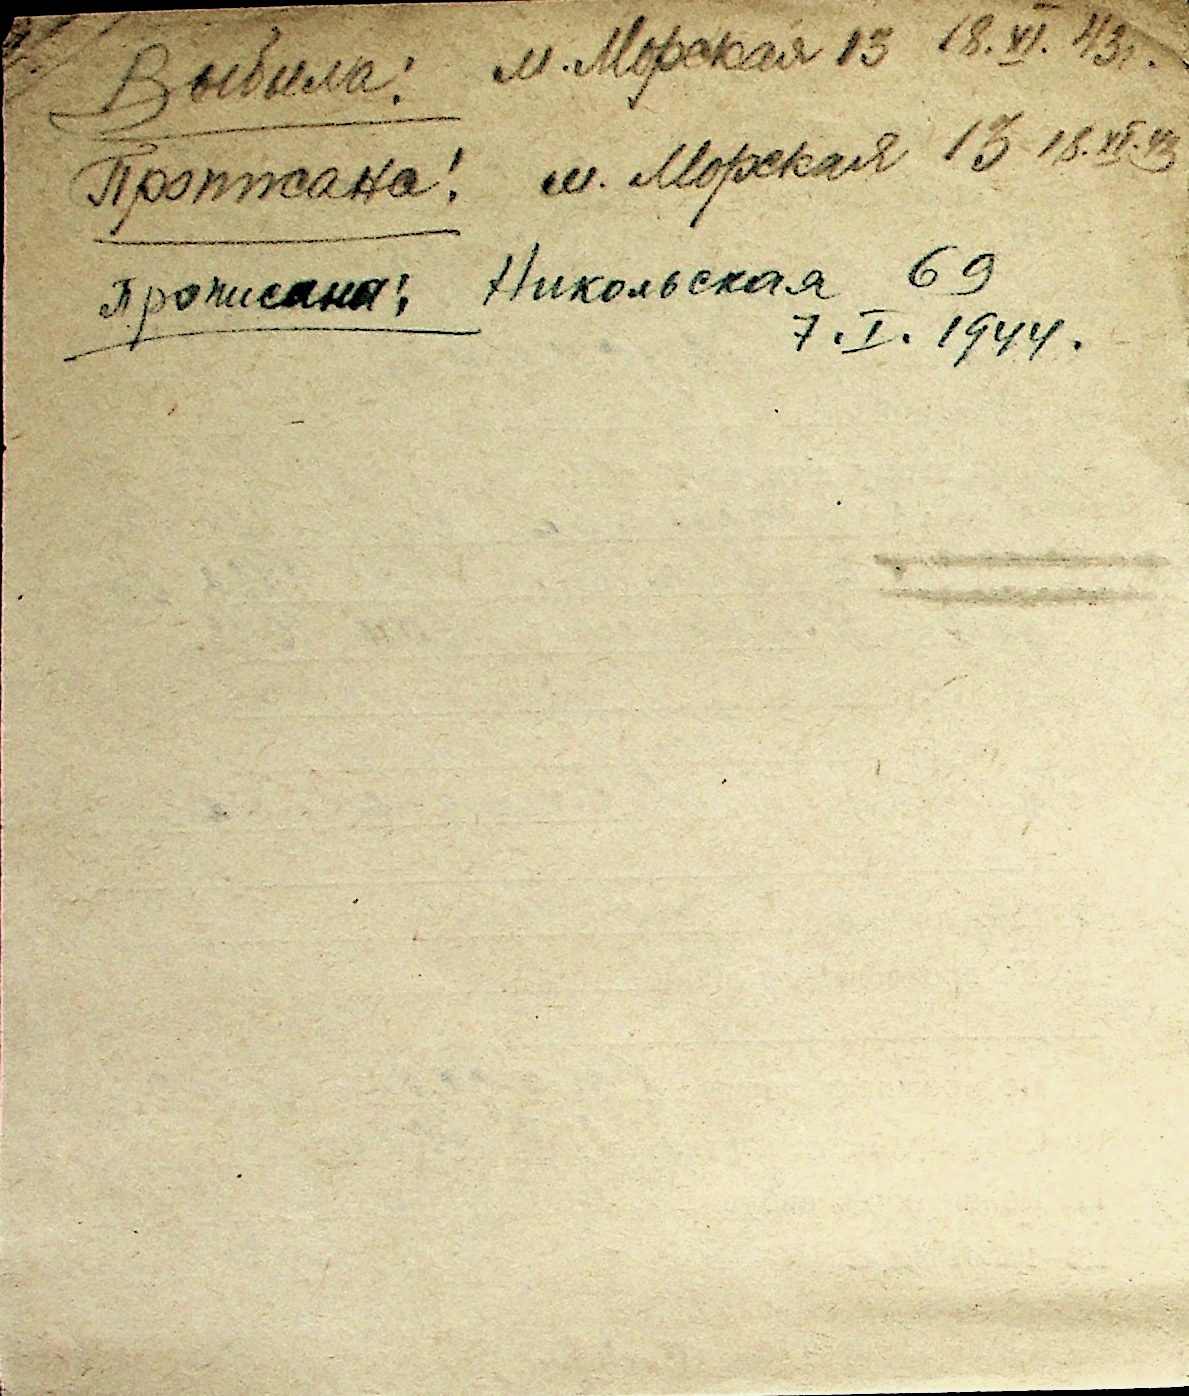 Выбыла: м. Морская 13 18.XI.43г.
Прописана! м. Морская 13 18.XI.43
Прописана: Никольская 69
7.I.1944.